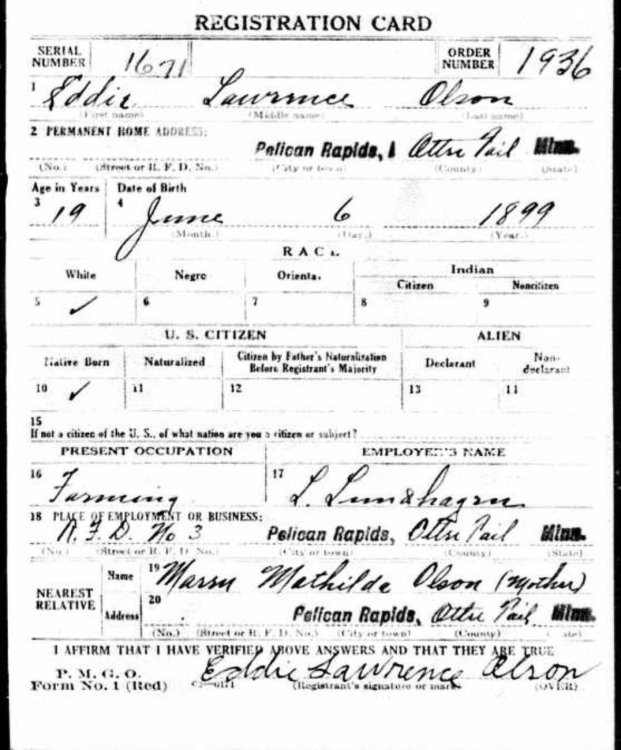 REGISTRATION CARD
SERIAL NUMBER 1671 ORDER NUMBER 1936
1 Eddie Lawrence Olson
(First name) (Middle name) (Last name)
2 PERMANENT HOME ADDRESS:
Pelican Rapids, Otter Tail Minn.
(No.) (Street or R. F. D. No.) (City or town) (County) (State)
Age in Years Date of Birth
3 19 4 June 6 1899
(Month.) (Day.) (Year.)
RACE
White Negro Oriental Indian
Citizen Noncitizen
5 ✓ 6 7 8 9
U. S. CITIZEN ALIEN
Native Born Naturalized Citizen by Father's Naturalization Before Registrant's Majority Declarant Non-declarant
10 ✓ 11 12 13 14
15
If not a citizen of the U. S., of what nation are you a citizen or subject?
PRESENT OCCUPATION EMPLOYER'S NAME
16 Farming 17 L.
18 PLACE OF EMPLOYMENT OR BUSINESS:
R. F. D. No 3 Pelican Rapids, Otter Tail Minn.
(No.) (Street or R. F. D. No.) (City or town) (County) (State)
NEAREST RELATIVE Name 19 Mathilda Olson (Mother)
Address 20 Pelican Rapids, Otter Tail Minn.
(No.) (Street or R. F. D. No.) (City or town) (County) (State)
I AFFIRM THAT I HAVE VERIFIED ABOVE ANSWERS AND THAT THEY ARE TRUE
P. M. G. O.
Form No. 1 (Red) Eddie Lawrence Olson
(Registrant's signature or mark) (OVER)